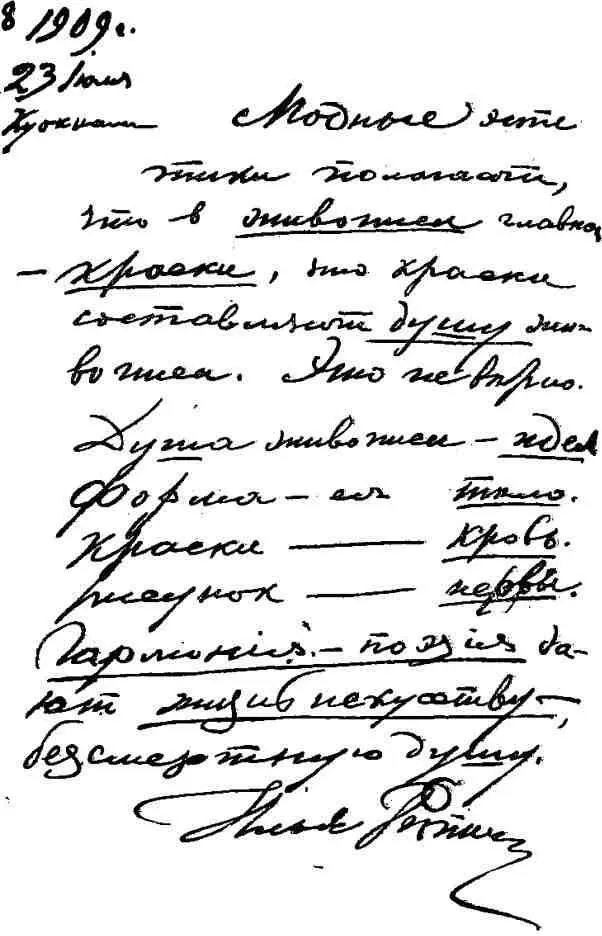 8 1909 г.
23 Iюля
Куоккала
Модные эсте
тики полагают,
что в живописи главное
– краски, что краски
составляют душу жи-
вописи. Это неверно.
Душа живописи – идея
Форма – ея тело.
Краски —— кровь.
рисунок —— нервы.
Гармонiя – поэзiя да-
ют жизнь искусству –
безсмертную душу.
Илья Репин